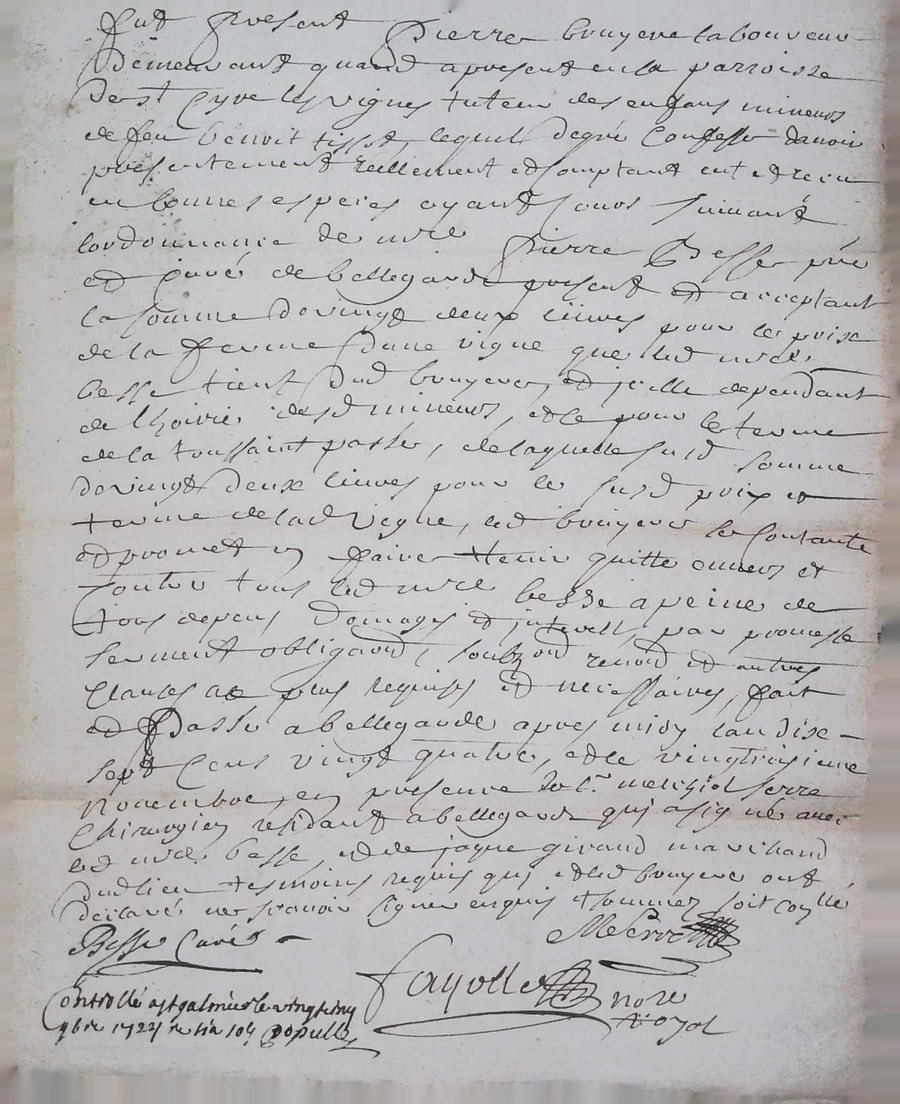 fut present Pierre bruyere laboureur
demeurant quand apresent en la parroisse
de st Cyre les vignes tuteur des enfans mineurs
de feu benoit tissot, lequel degré Confesse davoir
presentement reellement et comptant eut et receu
en bonnes especes ayant cours suivant
lordonnance de mre Pierre Besse pre
et curé de bellegarde present et acceptant
la somme de vingt deux livres pour le prix
de la ferme dune vigne que led mre
besse tient dud bruyere, et jcelle dependant
de lhoirie desd mineurs, et ce pour le terme
de la toussaint passé, de laquelle susd somme
de vingt deux livres pour le susd prix et
terme de lad vigne, led bruyere le Contante
et promet en faire tenir quitte envers et
Contre tous led mre besse a peine de
tous depens domages et jnterests, par promesse
serment obligaon, soubzon renon et autres
Clauses a ce plus requises et necessaires, fait
et Passé a bellegarde apres midy lan dixe-
sept Cens vingt quatre, et le vingtroisieme
Novembre, en presence de sr melchiol serre
Chirurgien residant a bellegarde qui a signé avec
led mre besse, et de jaque giraud marchand
dud lieu tesmoins requis qui et led bruyere ont
déclaré ne scavoir signer enquis et sommez soit collé
Besse Curé
MSerre
fayolle nore
royal
Controllé a st galmier le vingt
9bre 1724 r six